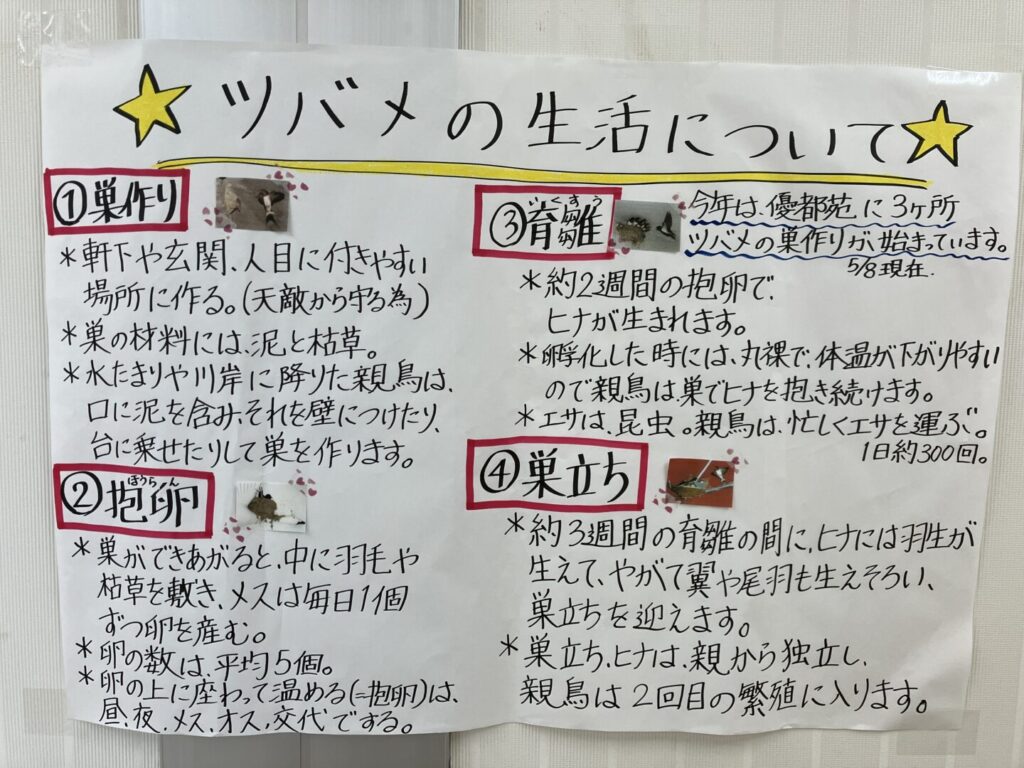 ツバメの生活について
①巣作り
*軒下や玄関、人目に付きやすい
場所に作る。(天敵から守る為)
*巣の材料には、泥と枯草。
*水たまりや川岸に降りた親鳥は、
口に泥を含み、それを壁につけたり、
台に乗せたりして巣を作ります。
②抱卵
ほうらん
*巣ができあがると、中に羽毛や
枯草を敷き、メスは毎日1個
ずつ卵を産む。
*卵の数は、平均5個。
*卵の上に座わって温める(=抱卵)は、
昼、夜、メス、オス、交代でする。
③育雛
いくすう
今年は、優都苑に3ヶ所
ツバメの巣作りが、始まっています。
5/8現在.
*約2週間の抱卵で、
ヒナが生まれます。
*孵化した時には、丸裸で、体温が下がりやすい
ので親鳥は巣でヒナを抱き続けます。
*エサは、昆虫。親鳥は、忙しくエサを運ぶ。
1日約300回。
④巣立ち
*約3週間の育雛の間に、ヒナには羽生が
生えて、やがて翼や尾羽も生えそろい、
巣立ちを迎えます。
*巣立ち、ヒナは、親から独立し、
親鳥は2回目の繁殖に入ります。